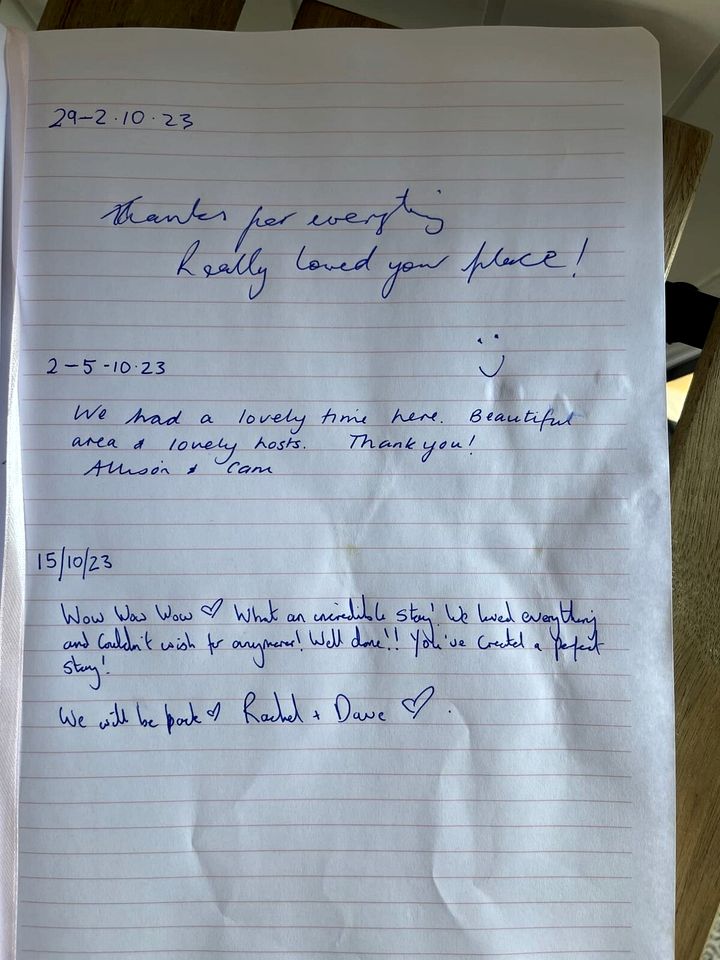 29-2.10.23
Thanks for everything
Really loved your place!
2-5-10.23
We had a lovely time here. Beautiful
area & lovely hosts. Thank you!
Allison & Cam
15/10/23
Wow Wow Wow ♡ What an incredible stay! We loved everything
and couldn't wish for anymore! Well done!! You've created a perfect
stay!
We will be back ♡ Rachel + Dave ♡.